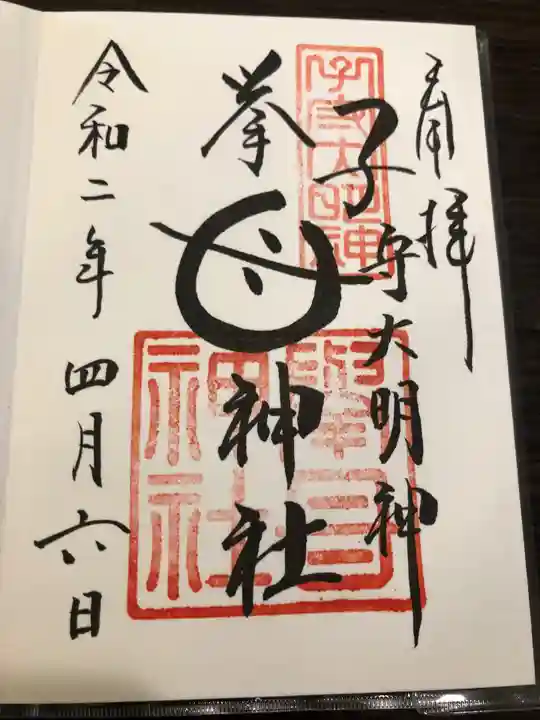 奉拝
子守大明神
挙母神社
令和二年四月六日
子守大明神